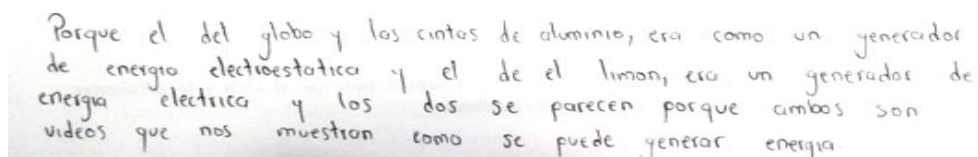 Porque el del globo y las cintas de aluminio, era como un generador
de energia electroestatica y el de el limon, era un generador de
energia electrica y los dos se parecen porque ambos son
videos que nos muestran como se puede generar energia.